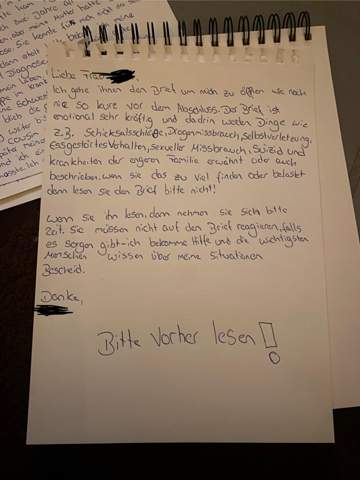 Liebe Frau
Ich gebe ihnen den Brief um mich zu öffnen wie noch
nie so kurz vor dem Abschluss. Der Brief ist
emotional sehr kräftig und dadrin werden Dinge wie
z.B. Schicksalsschläge, Drogenmissbrauch, Selbstverletzung,
Essgestörtes Verhalten, sexueller Missbrauch, Suizid und
krankheiten der engeren Familie erwähnt oder auch
beschrieben, wenn sie das zu viel finden oder belastet
dann lesen sie den Brief bitte nicht!
Wenn sie ihn lesen, dann nehmen sie sich bitte
Zeit. Sie müssen nicht auf den Brief reagieren, falls
es sorgen gibt - ich bekomme Hilfe und die wichtigsten
Menschen wissen über meine Situationen
Bescheid.
Danke,
Bitte Vorher lesen!